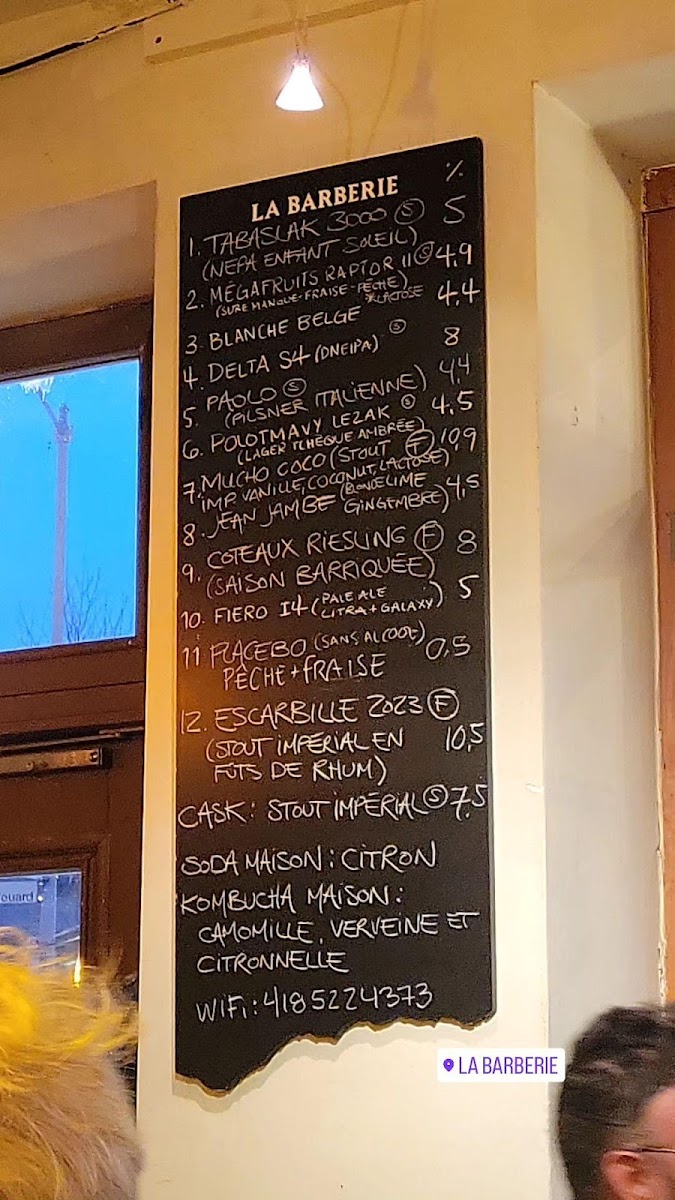 %
LA BARBERIE
1. TABASLAK 3000 Ⓢ 5
(NEPA ENFANT SOLEIL)
2. MÉGAFRUITS RAPTOR II Ⓢ 4,9
(SURE MANGUE-FRAISE-PÊCHE)
*LACTOSE
3. BLANCHE BELGE 4,4
4. DELTA S4 (DNEIPA) Ⓢ 8
5. PAOLO Ⓢ 4,4
(PILSNER ITALIENNE)
6. POLOTMAVY LEZAK Ⓢ 4,5
(LAGER TCHÈQUE AMBRÉE)
7. MUCHO COCO (STOUT Ⓕ 10,9
IMP. VANILLE, COCONUT, LACTOSE)
8. JEAN JAMBE (BLONDE LIME 4,5
GINGEMBRE)
9. COTEAUX RIESLING Ⓕ 8
(SAISON BARRIQUÉE)
10. FIERO I4 (PALE ALE 5
CITRA + GALAXY)
11 PLACEBO (SANS ALCOOL) 0,5
PÊCHE + FRAISE
12. ESCARBILLE 2023 Ⓕ
(STOUT IMPÉRIAL EN 10,5
FÛTS DE RHUM)
CASK: STOUT IMPÉRIAL Ⓢ 7,5
SODA MAISON: CITRON
KOMBUCHA MAISON:
CAMOMILLE, VERVEINE ET
CITRONNELLE
WIFI: 4185224373
LA BARBERIE